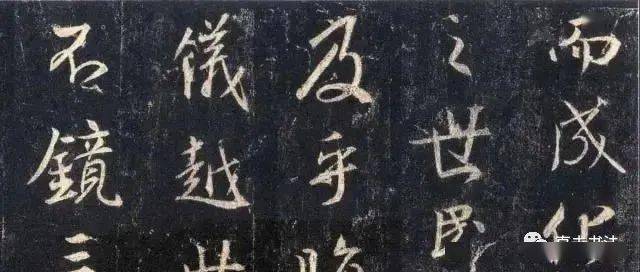 而成化
之世民
及乎晦
儀越世
不鏡三
书法